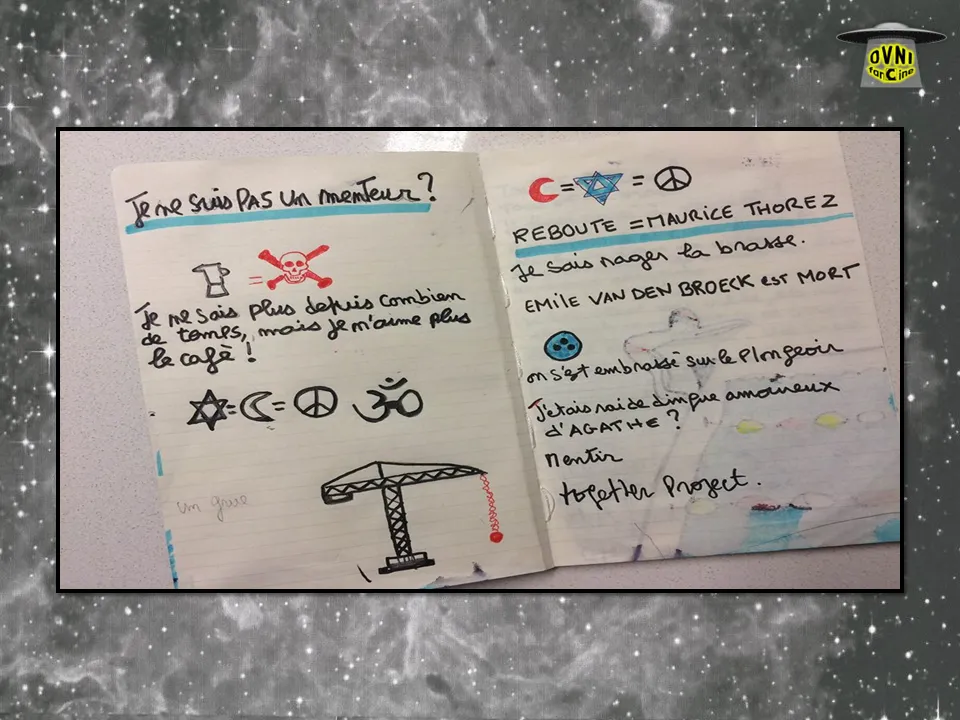 OVNI
for Cine
Je ne suis PAS un menteur ?
=
Je ne sais plus depuis combien
de temps, mais je m'aime plus
le café !
= =
un grue
= =
REBOUTE = MAURICE THOREZ
Je sais nager la brasse.
EMILE VAN DEN BROECK est MORT
on s'est embrassé sur le plongeoir
J'étais raide dingue amoureux
d'AGATHE ?
Mentir
together Project.